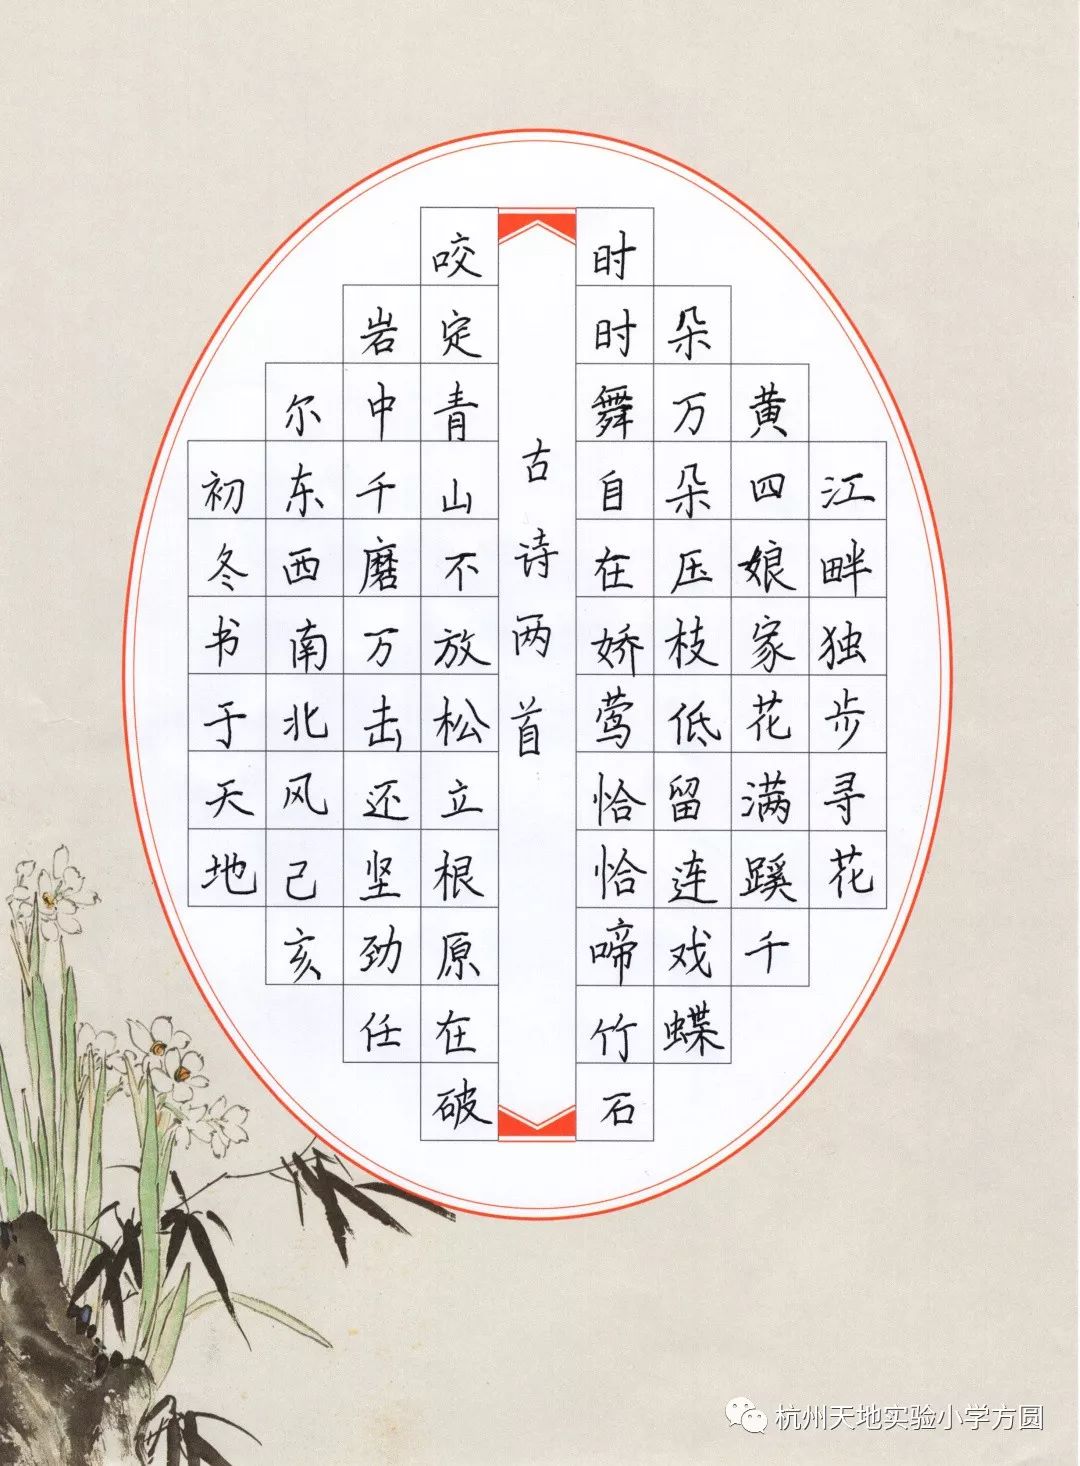 江畔独步寻花
黄四娘家花满蹊千
朵万朵压枝低留连戏蝶
时时舞自在娇莺恰恰啼竹石
古诗两首
咬定青山不放松立根原在破
岩中千磨万击还坚劲任
尔东西南北风己亥
初冬书于天地
杭州天地实验小学方圆